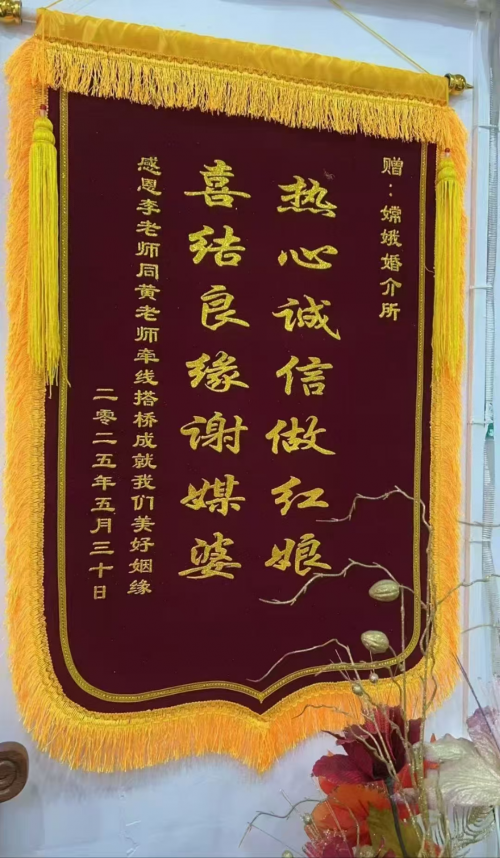 赠：嫦娥婚介所
热心诚信做红娘
喜结良缘谢媒婆
感恩李老师同黄老师牵线搭桥成就我们美好姻缘
二零二五年五月三十日